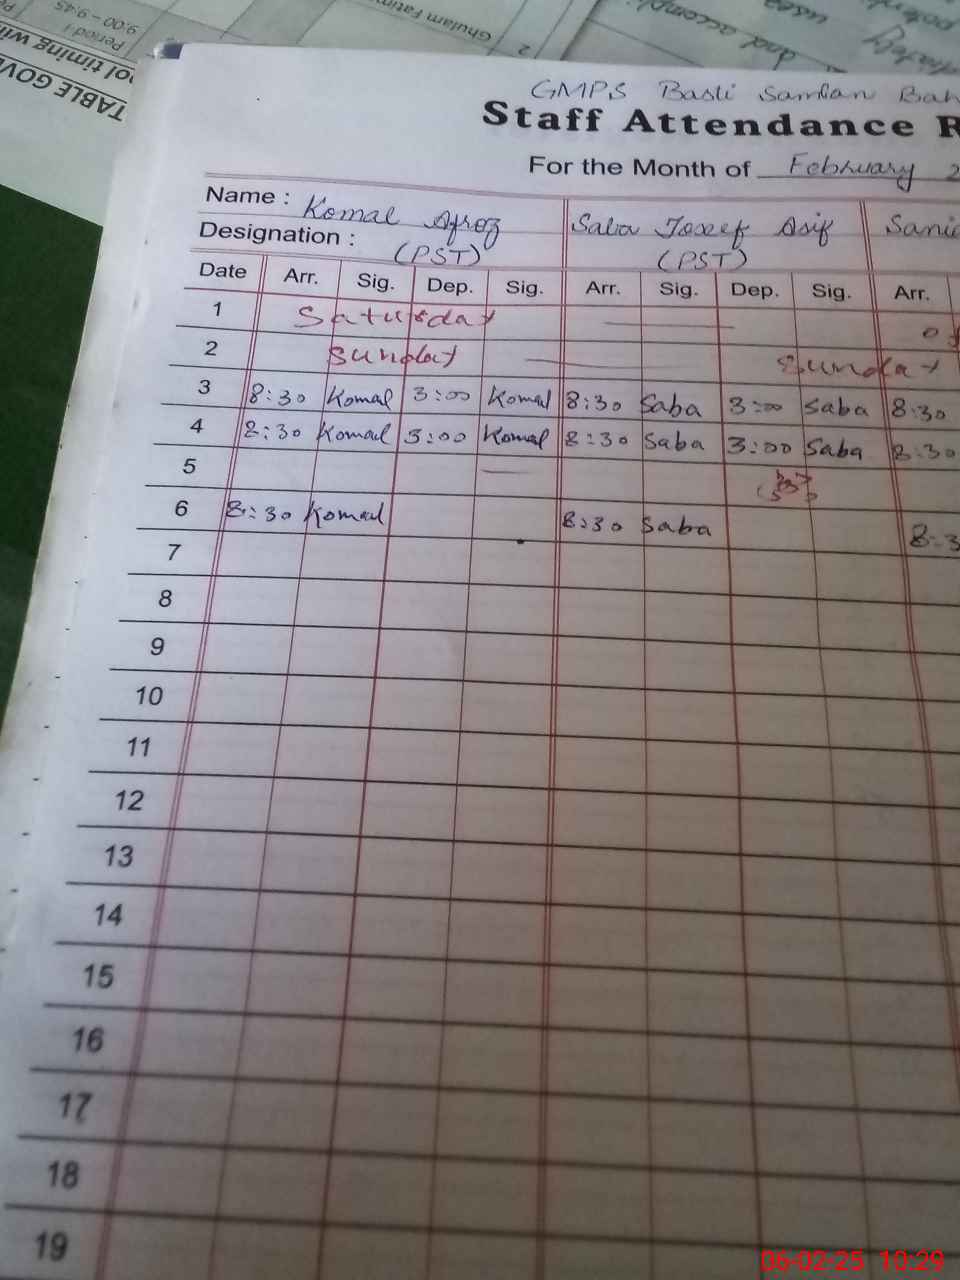 TABLE GOV
ol timing wi
Period 1
9:00 - 9:45
2 Ghulam Fatim
and accompl
uses
GMPS Basti Samdan Bah
Staff Attendance R
For the Month of February 2
Name : Komal Afroz Saba Tosef Asif Sani
Designation : (PST) (PST)
Date Arr. Sig. Dep. Sig. Arr. Sig. Dep. Sig. Arr.
1 Saturday
2 Sunday Sunday
3 8:30 Komal 3:00 Komal 8:30 Saba 3:00 Saba 8:30
4 8:30 Komal 3:00 Komal 8:30 Saba 3:00 Saba 8:30
5
6 8:30 Komal 8:30 Saba 8:3
7
8
9
10
11
12
13
14
15
16
17
18
19
06-02-25 10:29